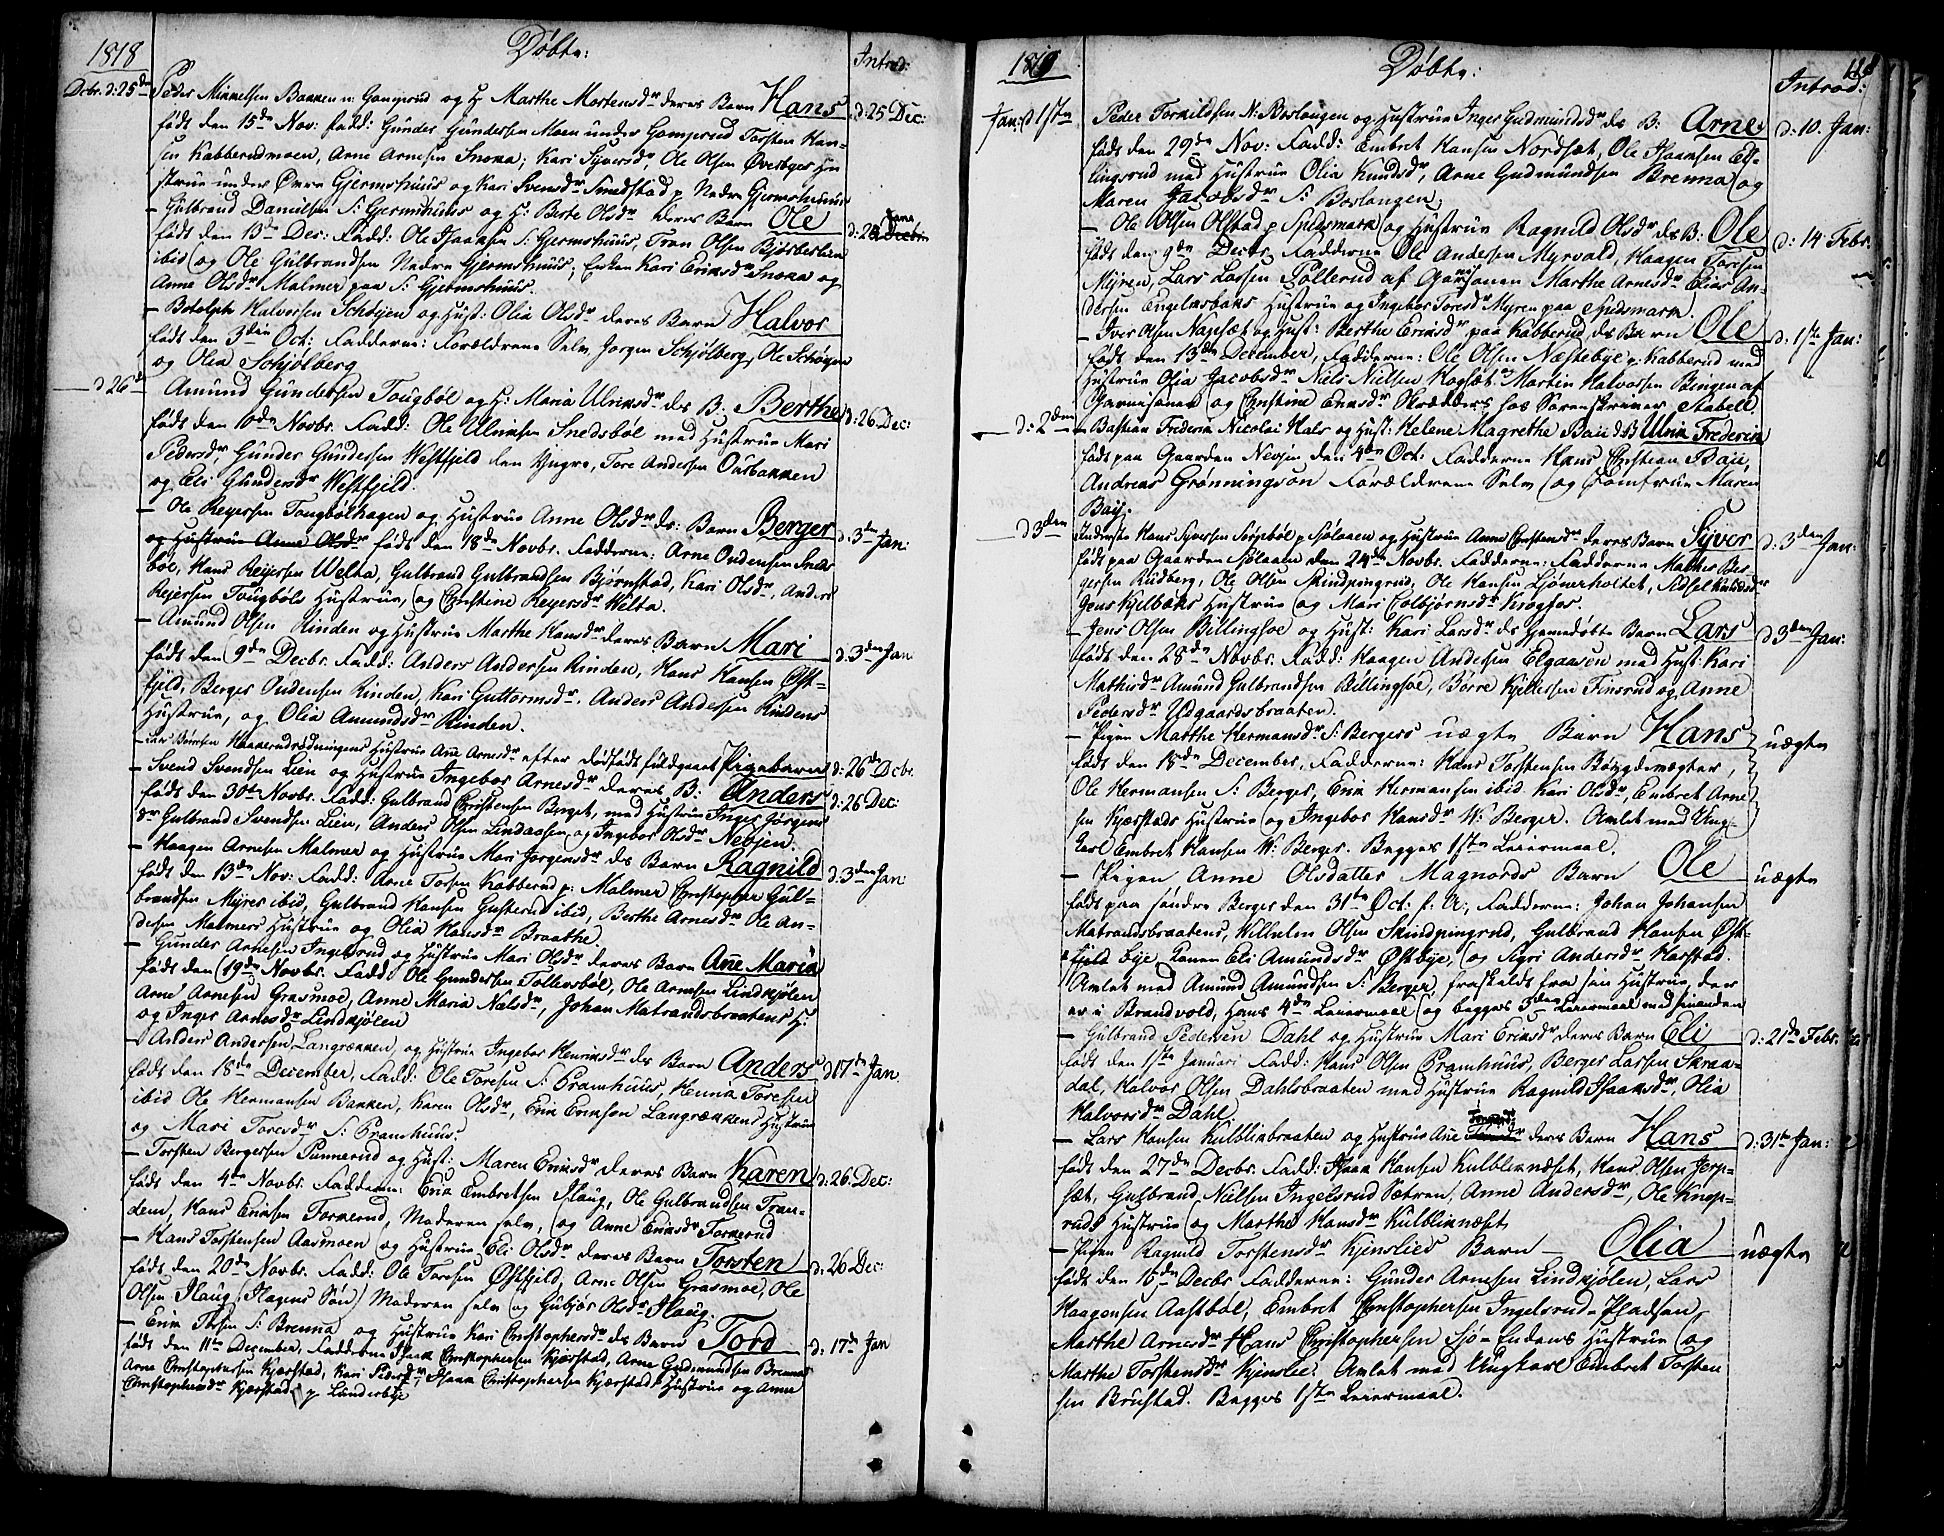 1818
Døbte:
Introd:
Decbr. d: 25de
Peder Mikkelsen Bakken u: Gamprud og H. Marthe Mortensdr deres Barn Hans
d: 25 Dec:
født den 15de Nov: Fadd: Gunder Gundersen Moen under Gamprud Torsten Han-
sen Kabberudmoen, Arne Arnesen Snoxa; Kari Syversdr, Ole Olsen Øverbyes Hu-
strue under Øvre Gjermshuus og Kari Svensdr Smedstad p Nedre Gjermshuus
– Gulbrand Danielsen S: Gjermshuus og H: Berte Olsdr deres Barn Ole
født den 13de Dec: Fadd: Ole Isaaksen S: Gjermshuus, Tron Olsen Bjørberlien
ibid og Ole Gulbrandsen Nedre Gjermshuus; Enken Kari Eriksdr Snoxa og
Anne Olsdr Malmer paa S: Gjermshuus.
– Botolph Halvorsen Schøyen og Hust: Olia Olsdr deres Barn Halvor
født den 3die Oct: Fadderne: Forældrene Selv, Jørgen Schjølberg, Ole Schøyen
og Olia Schjølberg
d 26de
Amund Gundersen Tougbøl og H: Maria Ulriksdr des B: Berthe
d: 26 Dec:
født den 10de Novbr. Fadd: Ole Ulriksen Snedsbøl med Hustrue Mari
Pedersdr Gunder Gundersen Westfjeld den Yngre, Tore Andersen Ousbakken
og Eli Gundersdr Westfjeld.
– Ole Reyersen Tougbølhagen og Hustrue Anne Olsdr ds: Barn Berger
d: 3den Jan:
og Hustrue Anne Olsdr født den 18de Novbr. Fadderne: Arne Ovidensen Sneds
bøl, Hans Reyersen Welta, Gulbrand Gulbrandsen Bjørnstad, Kari Olsdr, Anders
Reyersen Tougbøls Hustrue, og Christine Reyersdr Welta.
– Amund Olsen Rinden og Hustrue Marthe Hansdr deres Barn Mari
d: 3den Jan:
født den 9de Decbr. Fadd: Anders Andersen Rinden, Hans Hansen Øst-
fjeld, Berger Ovidensen Rinden, Kari Guttormsdr, Anders Andersen Rindens
Hustrue, og Olia Amundsdr Rinden.
– Hustrue Ane Arnesdr efter dødfødt fuldbaaret Pigebarn
d: 26de Decbr.
– Svend Svendsen Lien og Hustrue Ingebor Arnesdr deres B: Anders
d: 26 Dec:
født den 30te Novbr. Fadd: Gulbrand Christensen Berget, med Hustrue Inger Jørgens
dr Gulbrand Svendsen Lien, Anders Olsen Lindaasen og Ingebor Olsdr Nebjen.
– Haagen Arnesen Malmer og Hustrue Mari Jørgensdr ds Barn Ragnild
d: 3den Jan
født den 13de Nov: Fadd: Arne Torsen Kabberud p: Malmer Christopher Gul-
brandsen Myrer ibid, Gulbrand Hansen Gusterud ibid, Berthe Arnesdr Ole An-
dersen Malmers Hustrue og Olia Hansdr Braathe.
– Gunder Arnesen Ingelsrud og Hustrue Mari Olsdr deres Barn Ane Maria
født den 19de Novbr. Fadd: Ole Gundersen Tollersbøl, Ole Arnesen Lindkjølen
Arne Arnesen Grasmoe, Anne Maria Nelsdr, Johan Matrandsbraatens H:
og Inger Arnesdr Lindkjølen
– Anders Andersen Langrækken, og Hustrue Ingebor Henriksdr des Barn Anders
d 17de Jan
født den 18de December, Fadd: Ole Toresen S: Pramhuus, Henrik Toresen
ibid Ole Hermansen Bakken, Karen Olsdr, Erik Eriksen Langrækkens Hustrue
og Mari Toresdr S: Pramhuus.
– Torsten Bergersen Punnerud og Hust: Maren Eriksdr deres Barn Karen
d: 26 Dec:
født den 4de Novbr. Fadderne: Erik Embretsen Haug, Ole Gulbrandsen Tran-
dem, Hans Eriksen Torkerud, Moderen selv, og Anne Eriksdr Torkerud
– Hans Torstensen Aasmoen og Hustrue Eli Olsdr deres Barn Torsten
d: 26 Dec:
født den 20de Novbr. Fadd: Ole Toresen Østfjeld, Arne Olsen Grasmoe, Ole
Olsen Haug (Hagens Søn) Moderen selv og Gubjør Olsdr Haug
– Erik S: Brenna og Hustrue Kari Christophersdr ds Barn Tord
d: 17de Jan
født den 11te December, Fadderne Isaak Christophersen Kjærstad, Arne Gudmundsen Brenna
Arne Christophersen Kjærstad, Kari Pedersdr Isaak Christophersen Kjærstads Hustrue og Anne
Christophersdr Kjærstad p Landerbye
1819
Døbte:
118
Introd:
Jan: d 1ste
Peder Torkildsen N: Borlaugen og Hustrue Inger Gudmundsdr ds B: Arne
d: 10. Jan:
født den 29de Nov: Fadd: Embret Hansen Nordsæt, Ole Isaaksen El-
lingsrud med Hustrue Olia Knudsdr, Arne Gudmundsen Brenna og
Maren Jacobsdr S: Borlangen;
– Ole Olsen Olstad p Spidsmark og Hustrue Ragnild Olsdr ds B: Ole
d: 14 Febr.
født den 9de Decbr Fadderne Ole Andersen Myrvald, Haagen Torsen
Myren, Lars Larsen Tollerud af Garnisonen Marthe Arnesdr Elias An-
dersen Englaebaks Hustrue og Ingebor Toresdr Myren paa Spidsmark.
– Iver Olsen Nagelsæt og Hust: Berthe Eriksdr paa Kabberud ds Barn Ole
d: 1ste Jan:
født den 13de December, Fadderne: Ole Olsen Næstebye p. Kabberud med
Hustrue Olia Jacobsdr Niels Nielsen Hogsæt Martin Halvorsen Bergen af
Garnisonen og Christine Eriksdr Skrædders hos Sorenskriver Stabell
d: 2den
– Bastian Frederik Nicolai Hals og Hust: Helene Magrethe Baii ds B Ulrik Frederik
født paa Gaarden Nebjen den 4de Oct: Fadderne Hans Christian Baii,
Andreas Grønningson Forældrene Selv og Jomfrue Maren
Baij.
d 3den
Inderste Hans Syversen Sørgebøl p Sjølaaen og Hustrue Anne Christensdr deres Barn Syver
d: 3den Jan:
født paa Gaarden Sjølaaen den 24de Novbr. Fadderne: Fadderne Mathes Ber-
gersen Rudberg, Ole Olsen Skindpingrud, Ole Hansen Ljønerholtet, Adsel Knudsdr
Jens Kjelbaks Hustrue og Mari Colbjørnsdr Krogfos.
– Jens Olsen Billingsøe og Hust: Kari Larsdr ds Hjemedøbte Barn Lars
d 3den Jan:
født den 28de Novbr. Fadd: Haagen Andersen Elgaasen med Hust: Kari
Mathisdr Amund Gulbrandsen Billingsøe, Børre Kjeldsen Finsrud og Anne
Pedersdr Udgaardsbraaten.
– Pigen Marthe Hermansdr S: Bergers uægte Barn Hans
uægte
født den 18de December, Fadderne: Hans Torstensen Bøygdevægter,
Ole Hermansen S: Berger, Erik Hermansen ibid Kari Olsdr, Embret Arne
sen Kjærstads Hustrue og Ingebor Hansdr W: Berger. Avlet med Ung-
karl Embret Hansen W: Berger. Begges 1ste Leiermaal.
– Pigen Anne Olsdatter Magnords Barn Ole
uægte
født paa søndre Berger den 31te Oct: f. A:, Fadderne: Johan Johansen
Matrandsbraatens, Wilhelm Olsen Skindpingrud, Gulbrand Hansen Øst-
fjeld bye, Konen Eli Amundsdr Østbye, og Sigri Andersdr Harstad.
Avlet med Amund Amundsen S: Berger, fraskeldt fra sin Hustrue, der
er i Brandvold, Hans 4de Leiermaal og begges 3den Leiermaal med hinanden
– Gulbrand Pedersen Dahl og Hustrue Mari Eriksdr deres Barn Eli
d: 21de Febr.
født den 1ste Januari Fadd: Hans Olsen Pramhuus, Berger Larsen Skraa-
dal, Halvor Olsen Dahlsbraaten med Hustrue Ragnild Isaaksdr, Olia
Halvorsdr Dahl.
– Lars Hansen Kulblikbraaten og Hustrue Ane deres Barn Hans
d: 31te Jan:
født den 27de Decbr. Fadd: Isaak Hansen Kulbliknæset, Hans Olsen Jerp-
sæt, Gulbrand Nielsen Ingelsrud Sætren, Anne Andersdr, Ole Knap-
ruds Hustrue og Marthe Hansdr Kulbliknæset,
– Pigen Ragnild Torstensdr Kjenslies Barn – Olia
uægte
født den 16de Decbr Fadderne: Gunder Arnesen Lindkjølen, Lars
Haagensen Aastbøl, Embret Christophersen Ingelsrud-Pladsen,
Marthe Arnesdr Hans Christophersen Sjø-Endens Hustrue og
Marthe Torstensdr Kjenslie. Avlet med Ungkarl Embret Torsten
sen Brustad. Begges 1ste Leiermaal.